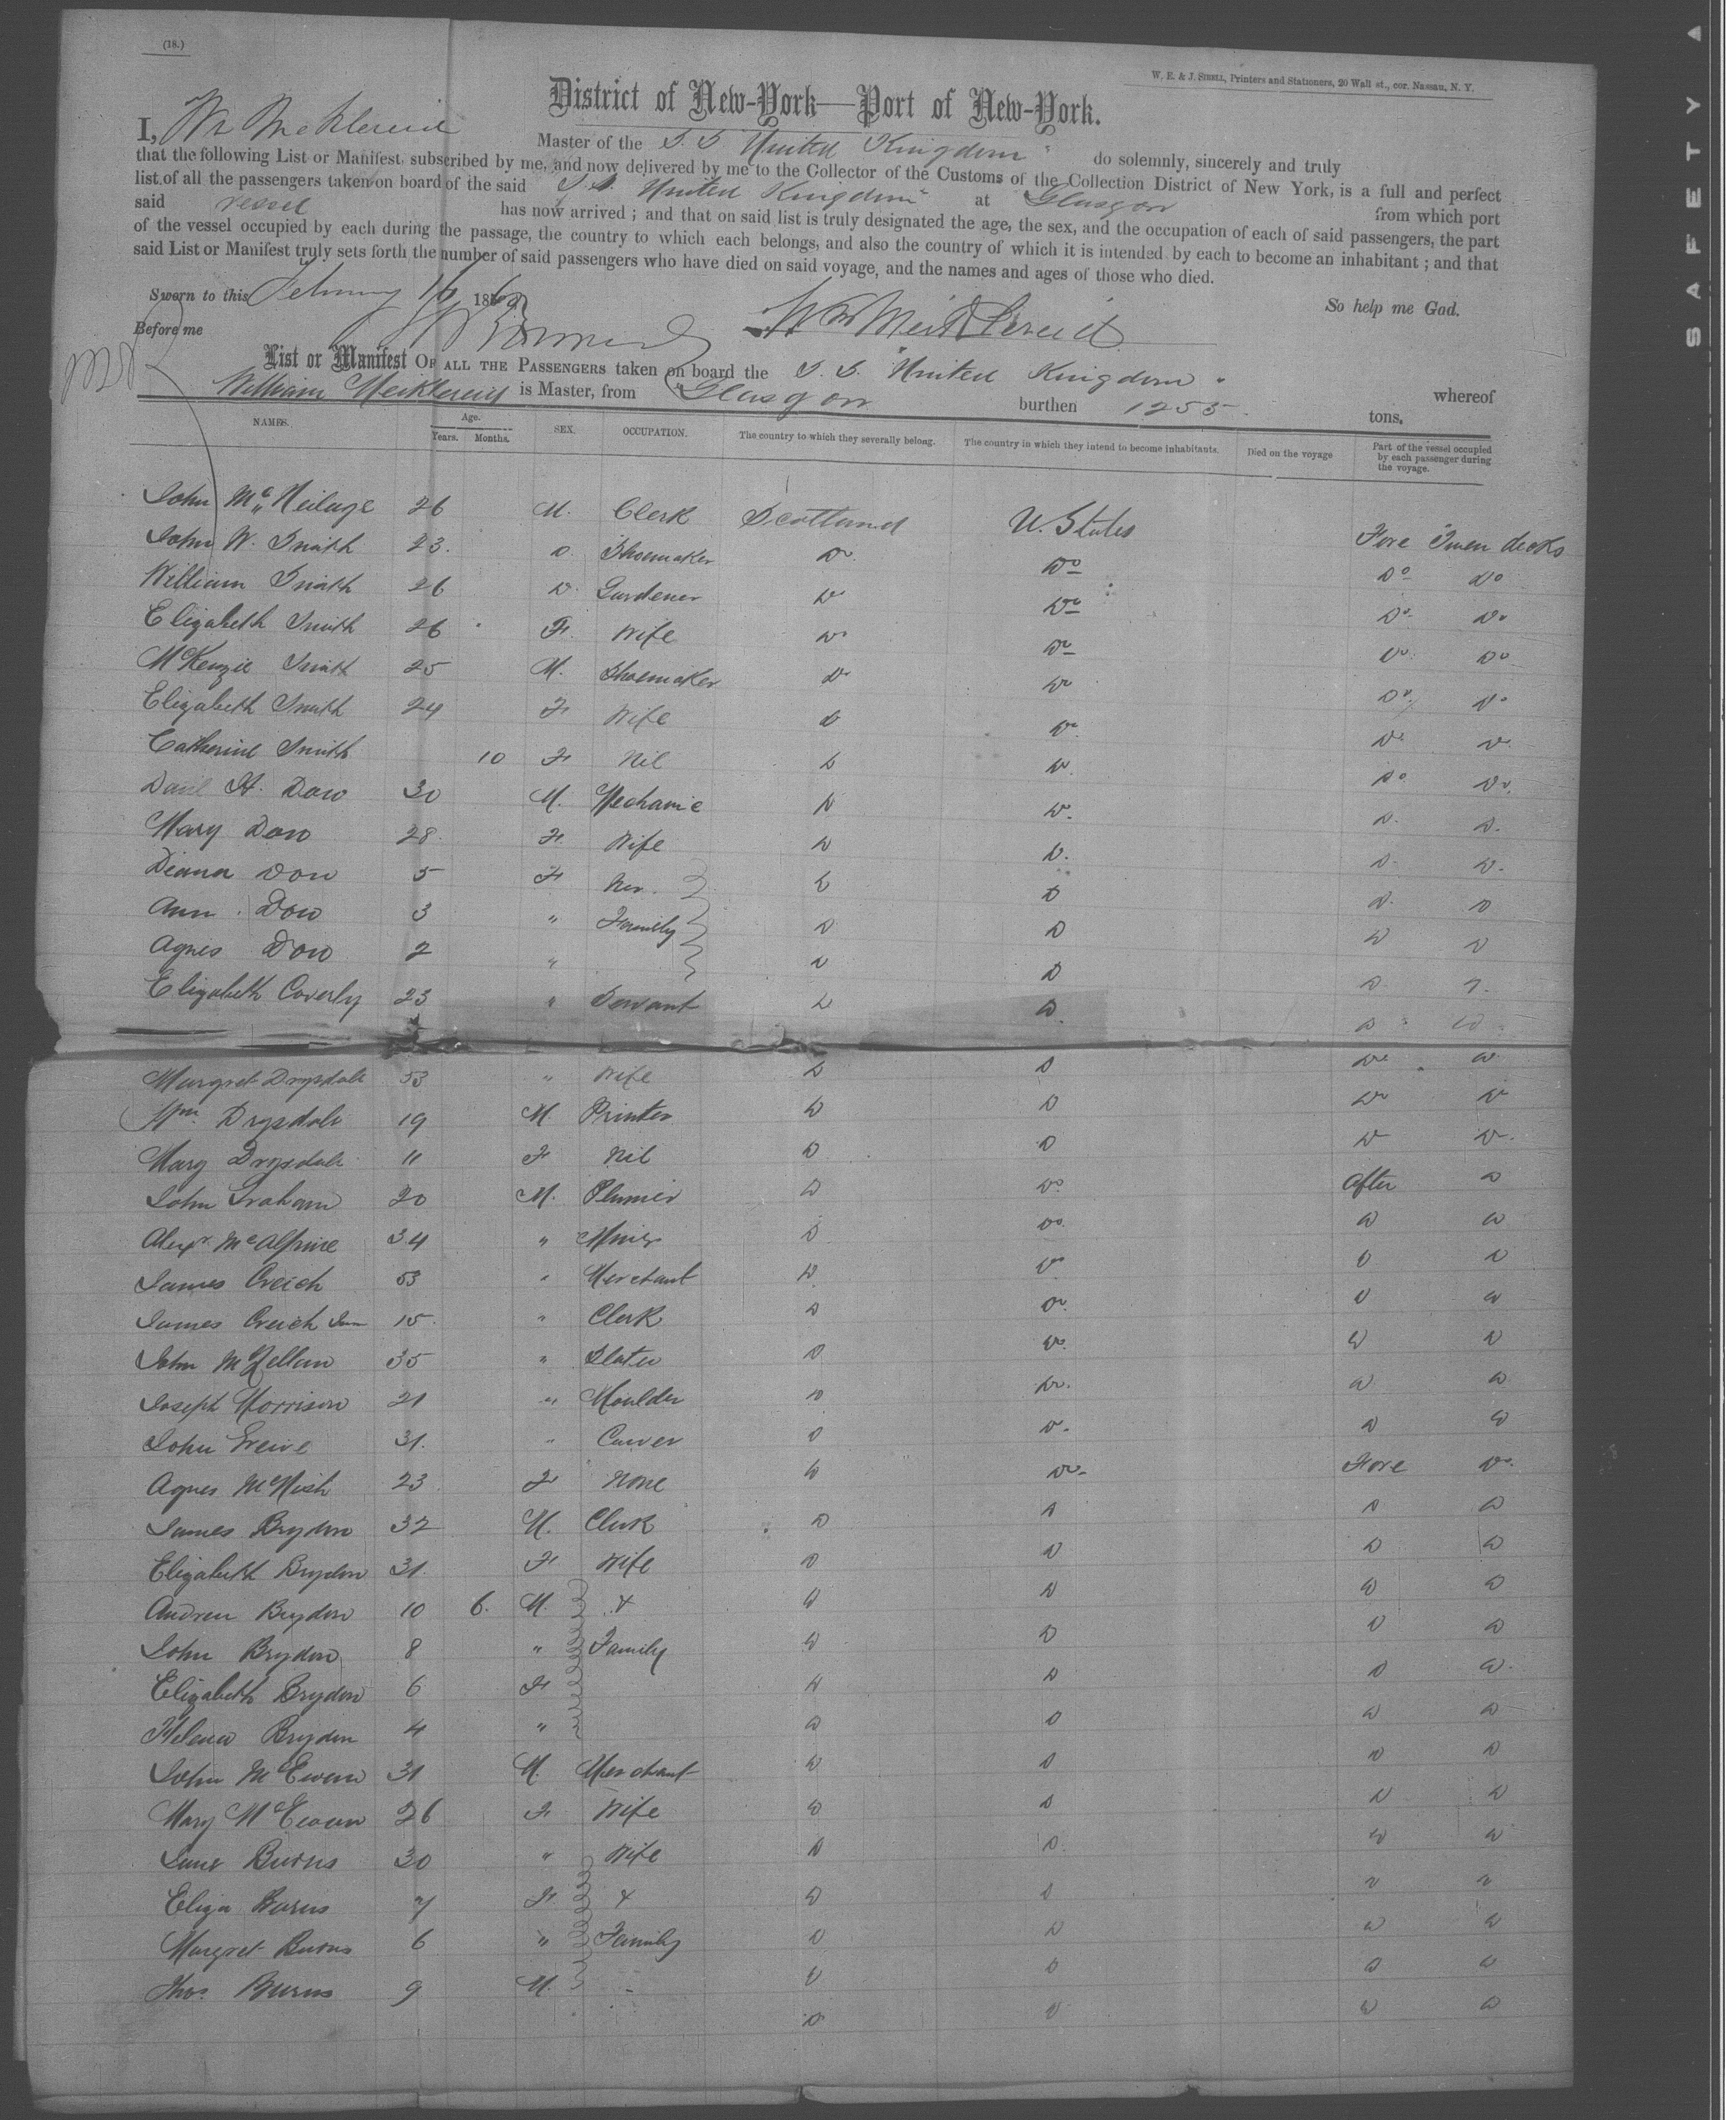 (18.)
W. E. & J. SIBELL, Printers and Stationers, 20 Wall st., cor. Nassau, N. Y.
District of New-York—Port of New-York.
I, Wm Meiklereid Master of the S. S. "United Kingdom" do solemnly, sincerely and truly
that the following List or Manifest, subscribed by me, and now delivered by me to the Collector of the Customs of the Collection District of New York, is a full and perfect
list of all the passengers taken on board of the said S. S. "United Kingdom" at Glasgow from which port
said vessel has now arrived ; and that on said list is truly designated the age, the sex, and the occupation of each of said passengers, the part
of the vessel occupied by each during the passage, the country to which each belongs, and also the country of which it is intended by each to become an inhabitant ; and that
said List or Manifest truly sets forth the number of said passengers who have died on said voyage, and the names and ages of those who died.
Sworn to this February 186 So help me God.
Before me Wm Meiklereid
List or Manifest OF ALL THE PASSENGERS taken on board the S. S. "United Kingdom" whereof
William Meiklereid is Master, from Glasgow burthen 1255 tons.
NAMES. Age. Years. Months. SEX. OCCUPATION. The country to which they severally belong. The country in which they intend to become inhabitants. Died on the voyage Part of the vessel occupied by each passenger during the voyage.
John McNeilage 26 M. Clerk Scotland U. States Fore Tween decks
John W. Smith 23. D. Shoemaker Do Do Do Do
William Smith 26 D. Gardener Do Do Do Do
Elizabeth Smith 26 F. Wife Do Do Do Do
McKenzie Smith 25 M. Shoemaker Do Do Do Do
Elizabeth Smith 24 F Wife D Do Do Do
Catherine Smith 10 F Nil D Do Do Do
David H. Dow 30 M. Mechanic D Do D. D.
Mary Dow 28 F. Wife D D. D. D.
Diana Dow 5 F D D D. D
Ann Dow 3 " Family D D D D
Agnes Dow 2 " D D D D
Elizabeth Coverly 23 " Servant D D D D
Margret Drysdale 53 " Wife D D Do D
Wm. Drysdale 19 M. Printer D D Do Do
Mary Drysdale 11 F Nil D D D D
John Graham 20 M. Plumer D Do After D
Alexr. McAlpine 34 " Miner D Do D D
James Creich 53 " Merchant D Do D D
James Creich Jun 15 " Clerk D Do D D
John McLellan 35 " Slater D Do D D
Joseph Morrison 21 " Moulder D Do D D
John Greive 31. " Carver D D. D D
Agnes McNish 23 F None D Do Fore Do
James Brydon 32 M. Clerk D D D D
Elizabeth Brydon 31. F Wife D D D D
Andrew Brydon 10 6. M. + D D D D
John Brydon 8 " Family D D D D
Elizabeth Brydon 6 F D D D D
Helena Brydon 4 " D D D D
John McEwen 31 M. Merchant D D D D
Mary McEwen 26 F Wife D D D D
Jane Burns 30 " Wife D D D D
Eliza Burns 7 F + D D D D
Margret Burns 6 " Family D D D D
Thos. Burns 9 M. D D D D
D D D D
SAFETY